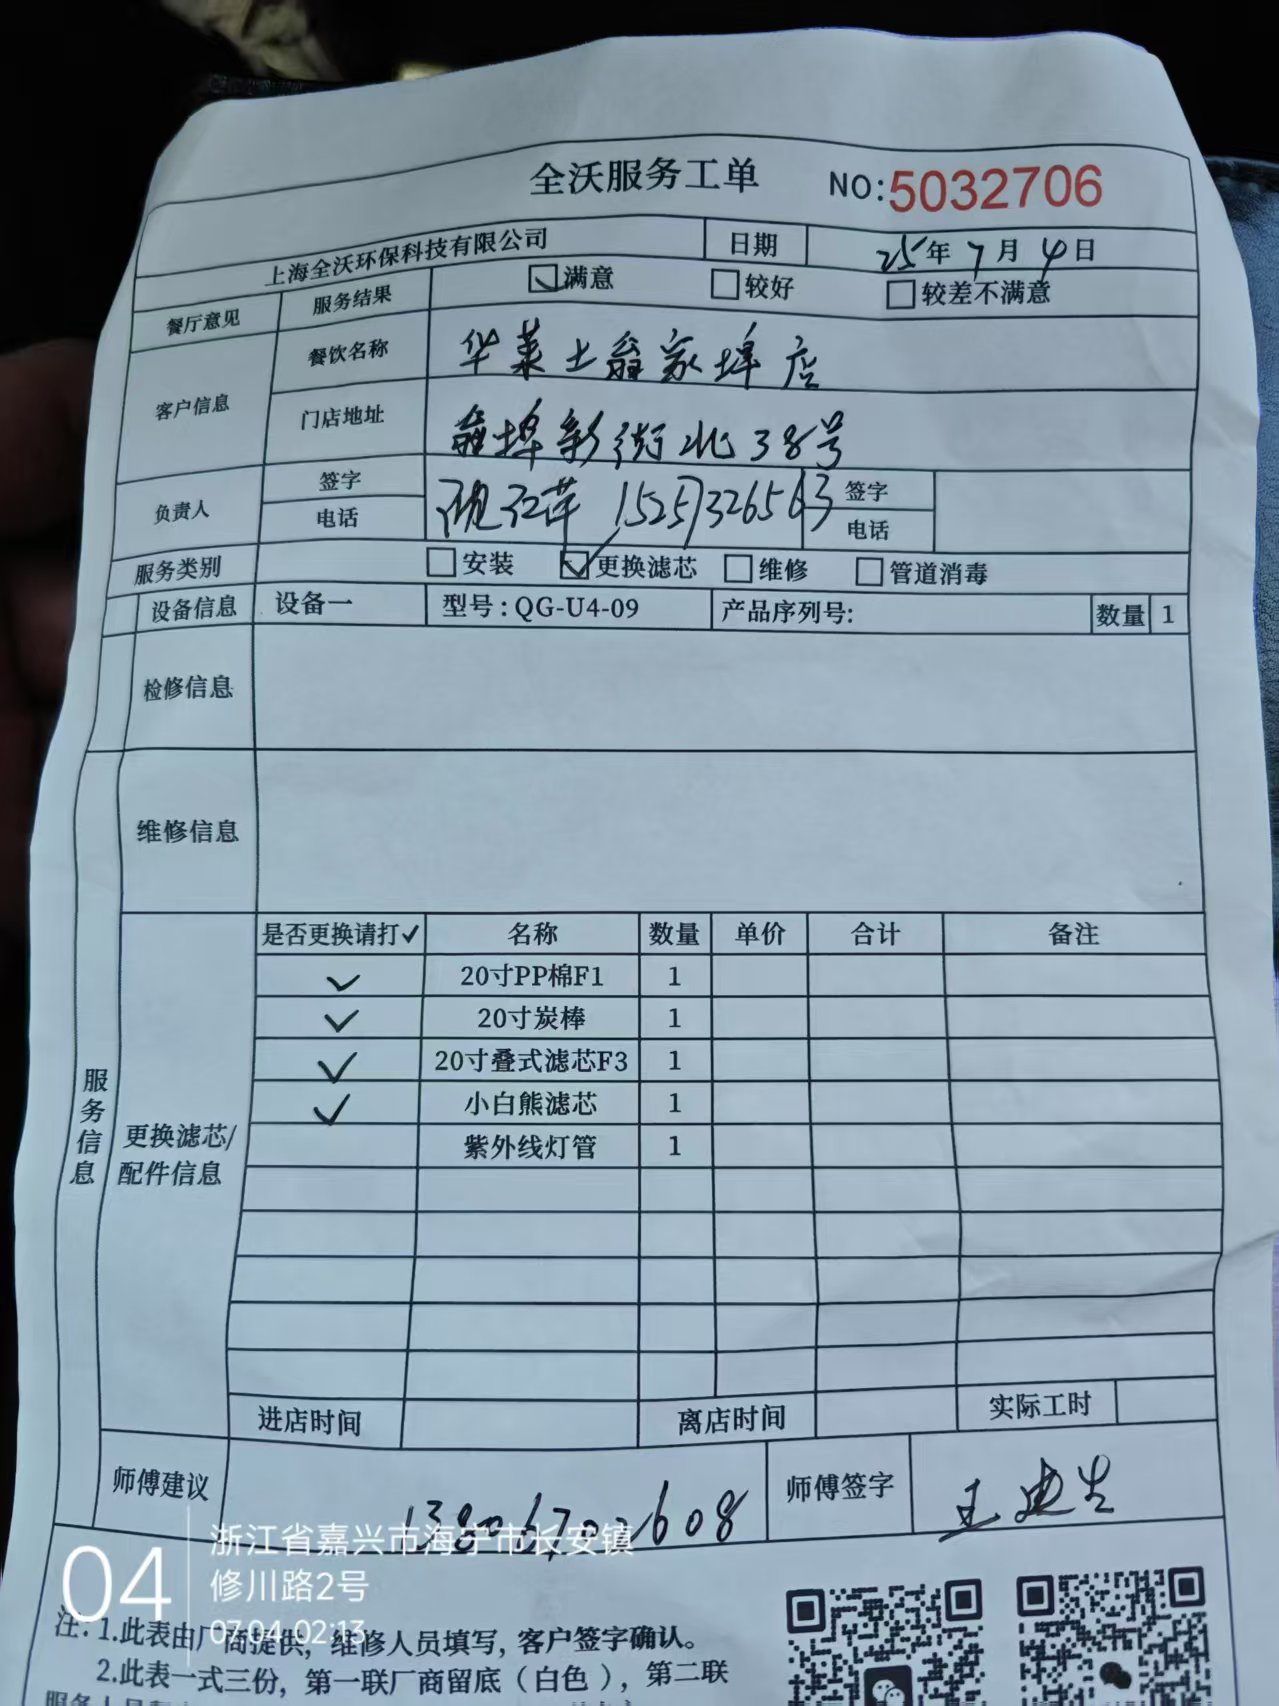 全沃服务工单 NO:5032706
上海全沃环保科技有限公司 日期 25年7月4日
餐厅意见 服务结果 满意 较好 较差不满意
客户信息 餐饮名称 华莱士翁家埠店
门店地址 翁埠新街北38号
负责人 签字 签字
电话 电话
服务类别 安装 更换滤芯 维修 管道消毒
设备信息 设备一 型号:QG-U4-09 产品序列号: 数量 1
检修信息
维修信息
服务信息
更换滤芯/
配件信息
是否更换请打✓ 名称 数量 单价 合计 备注
✓ 20寸PP棉F1 1
✓ 20寸炭棒 1
✓ 20寸叠式滤芯F3 1
✓ 小白熊滤芯 1
紫外线灯管 1
进店时间 离店时间 实际工时
师傅建议 13806702608 师傅签字
04
浙江省嘉兴市海宁市长安镇
修川路2号
07.04 02:13
注:1.此表由厂商提供,维修人员填写,客户签字确认。
2.此表一式三份,第一联厂商留底(白色),第二联